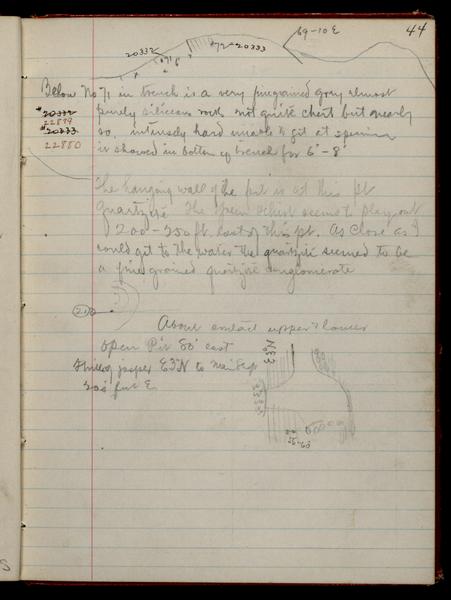 69-10 E
44
20332
71
72 = 20333
Below No 71 in trench is a very finegrained gray almost
20332 purely siliceous rock not quite chert but nearly
22879
20333 so, intensely hard unable to get at specimen
22880 is showed in bottom of trench for 6'-8'
The hanging wall of the pit is at this pt
Quartzite The green schist seems to play out
200-250 ft. East of this pt. As close as I
could get to the water the quartzite seemed to be
a fine grained quartzite conglomerate
About contact upper & lower
Open Pit 80' east
jasper E 5° N to
200 feet E.